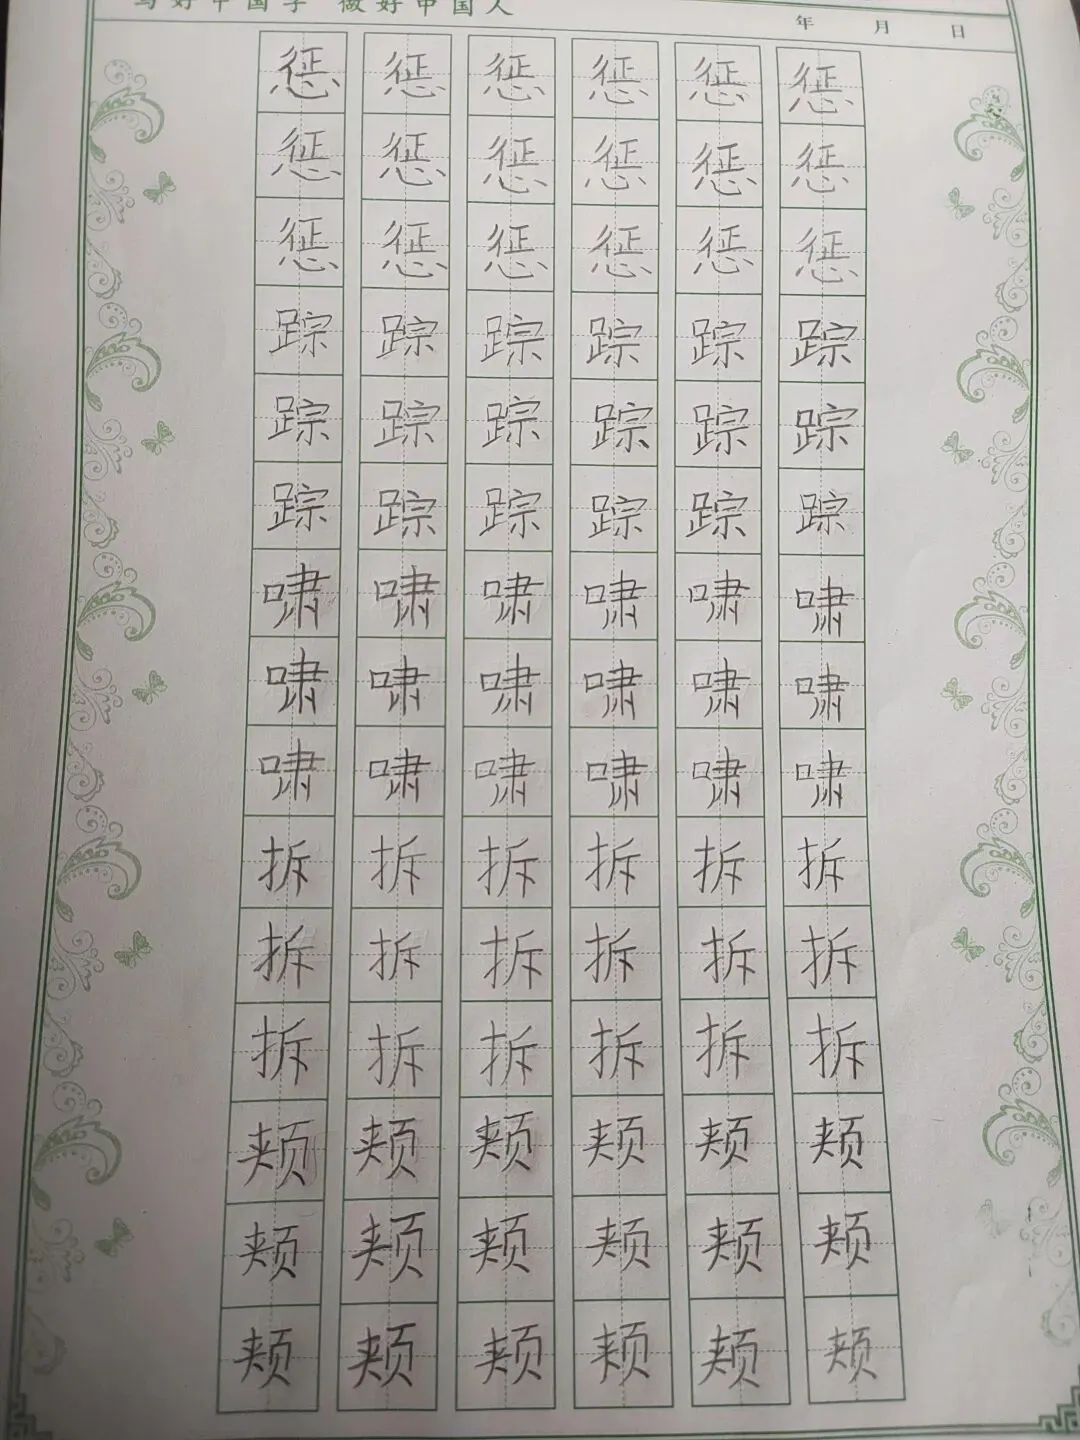 写好中国字 做好中国人
年 月 日
惩 惩 惩 惩 惩 惩
惩 惩 惩 惩 惩 惩
惩 惩 惩 惩 惩 惩
踪 踪 踪 踪 踪 踪
踪 踪 踪 踪 踪 踪
踪 踪 踪 踪 踪 踪
啸 啸 啸 啸 啸 啸
啸 啸 啸 啸 啸 啸
啸 啸 啸 啸 啸 啸
拆 拆 拆 拆 拆 拆
拆 拆 拆 拆 拆 拆
拆 拆 拆 拆 拆 拆
颊 颊 颊 颊 颊 颊
颊 颊 颊 颊 颊 颊
颊 颊 颊 颊 颊 颊